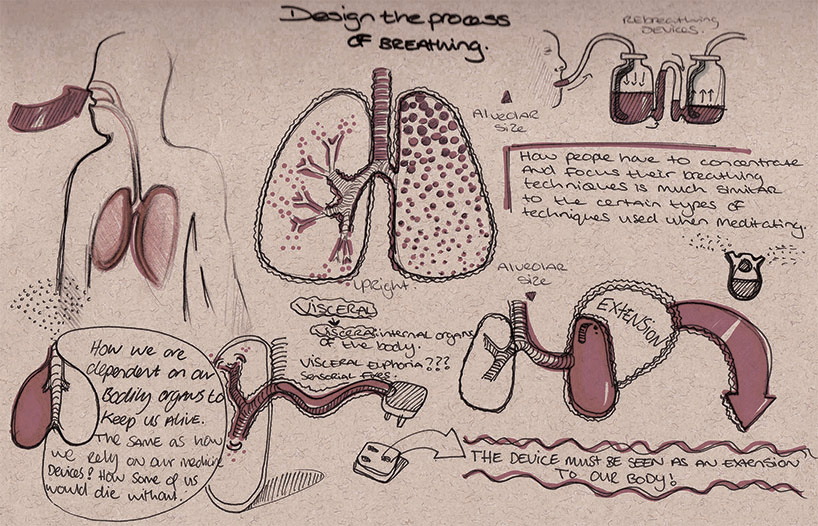 Design the process
OF BREATHING.
REbreathing
DEVICES.
Alveolar
Size
How peope have to concentrate
And focus their breathing
techniques is much similar
to the certain types of
techniques used when meditating.
upright.
Alveolar
Size
VISCERAL
VISCERAL: internal organs
of the body.
VISCERAL EUPHORIA???
SENSORIAL
EXTENSION
How we are
dependent on our
Bodily organs to
Keep us ALIVE.
The same as how
we rely on our medicine
Devices? How some of us
would die without..
THE DEVICE MUST BE SEEN AS AN EXTENSION
TO OUR BODY!